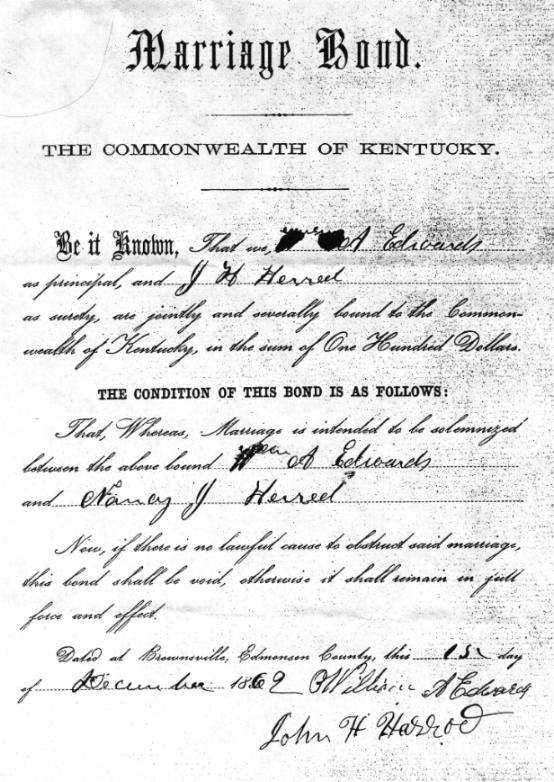 Marriage Bond.
THE COMMONWEALTH OF KENTUCKY.
Be it Known, That we, A Edwards
as principal, and J H Herrel
as surety, are jointly and severally bound to the Common-
wealth of Kentucky, in the sum of One Hundred Dollars.
THE CONDITION OF THIS BOND IS AS FOLLOWS:
That, Whereas, Marriage is intended to be solemnized
between the above bound Wm A Edwards
and Nancy J Herrel
Now, if there is no lawful cause to obstruct said marriage,
this bond shall be void, otherwise it shall remain in full
force and effect.
Dated at Brownsville, Edmonson County, this day
of December 1869 William A Edwards
John H Harrod